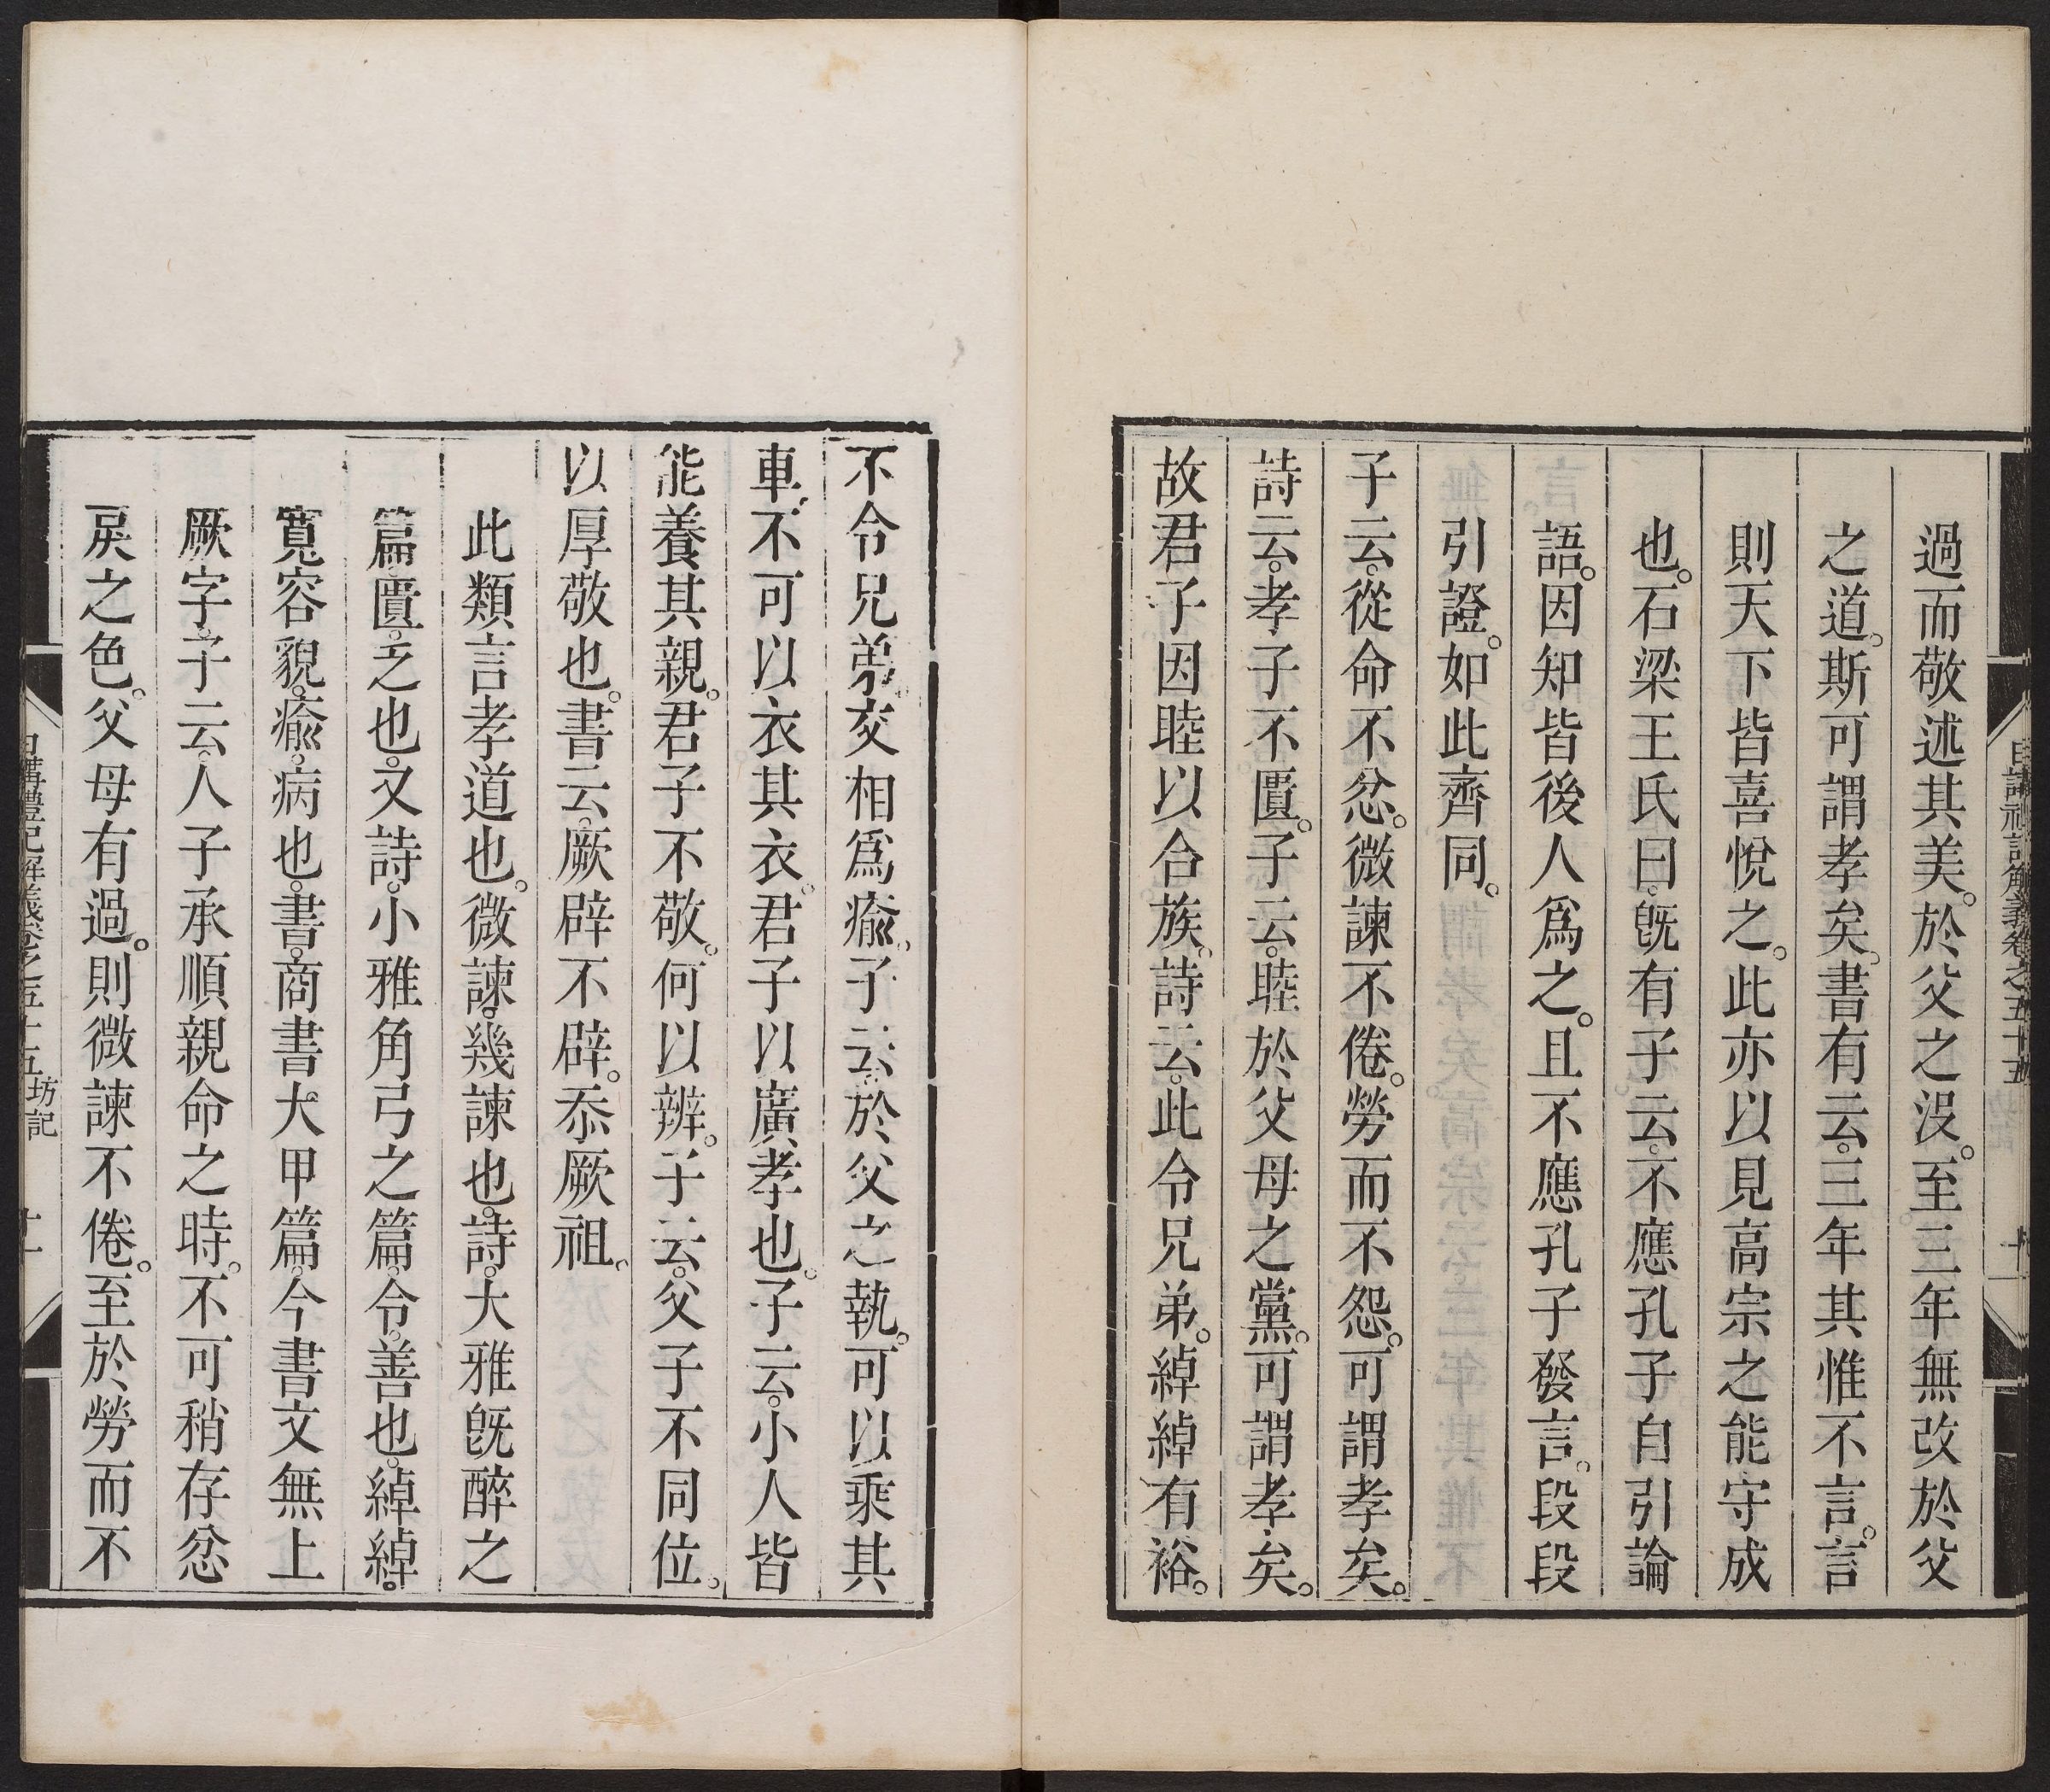 過而敬述其美。於父之沒。至三年無改於父
之道。斯可謂孝矣。書有云。三年其惟不言。言
則天下皆喜悅之。此亦以見高宗之能守成
也。石梁王氏曰。旣有子云。不應孔子自引論
語。因知皆後人爲之。且不應孔子發言。段段
引證。如此齊同。
子云。從命不忿。微諫不倦。勞而不怨。可謂孝矣。
詩云。孝子不匱。子云。睦於父母之黨。可謂孝矣。
故君子因睦以合族。詩云。此令兄弟。綽綽有裕。
日講禮記解義卷之五十五
十
不令兄弟。交相爲瘉。子云。於父之執。可以乘其
車。不可以衣其衣。君子以廣孝也。子云。小人皆
能養其親。君子不敬。何以辨。子云。父子不同位。
以厚敬也。書云。厥辟不辟。忝厥祖。
此類言孝道也。微諫。幾諫也。詩。大雅旣醉之
篇。匱。乏也。又詩。小雅角弓之篇。令。善也。綽綽。
寬容貌。瘉。病也。書。商書大甲篇。今書文無上
厥字。子云。人子承順親命之時。不可稍存忿
戾之色。父母有過。則微諫不倦。至於勞而不
日講禮記解義卷之五十五 坊記 十一